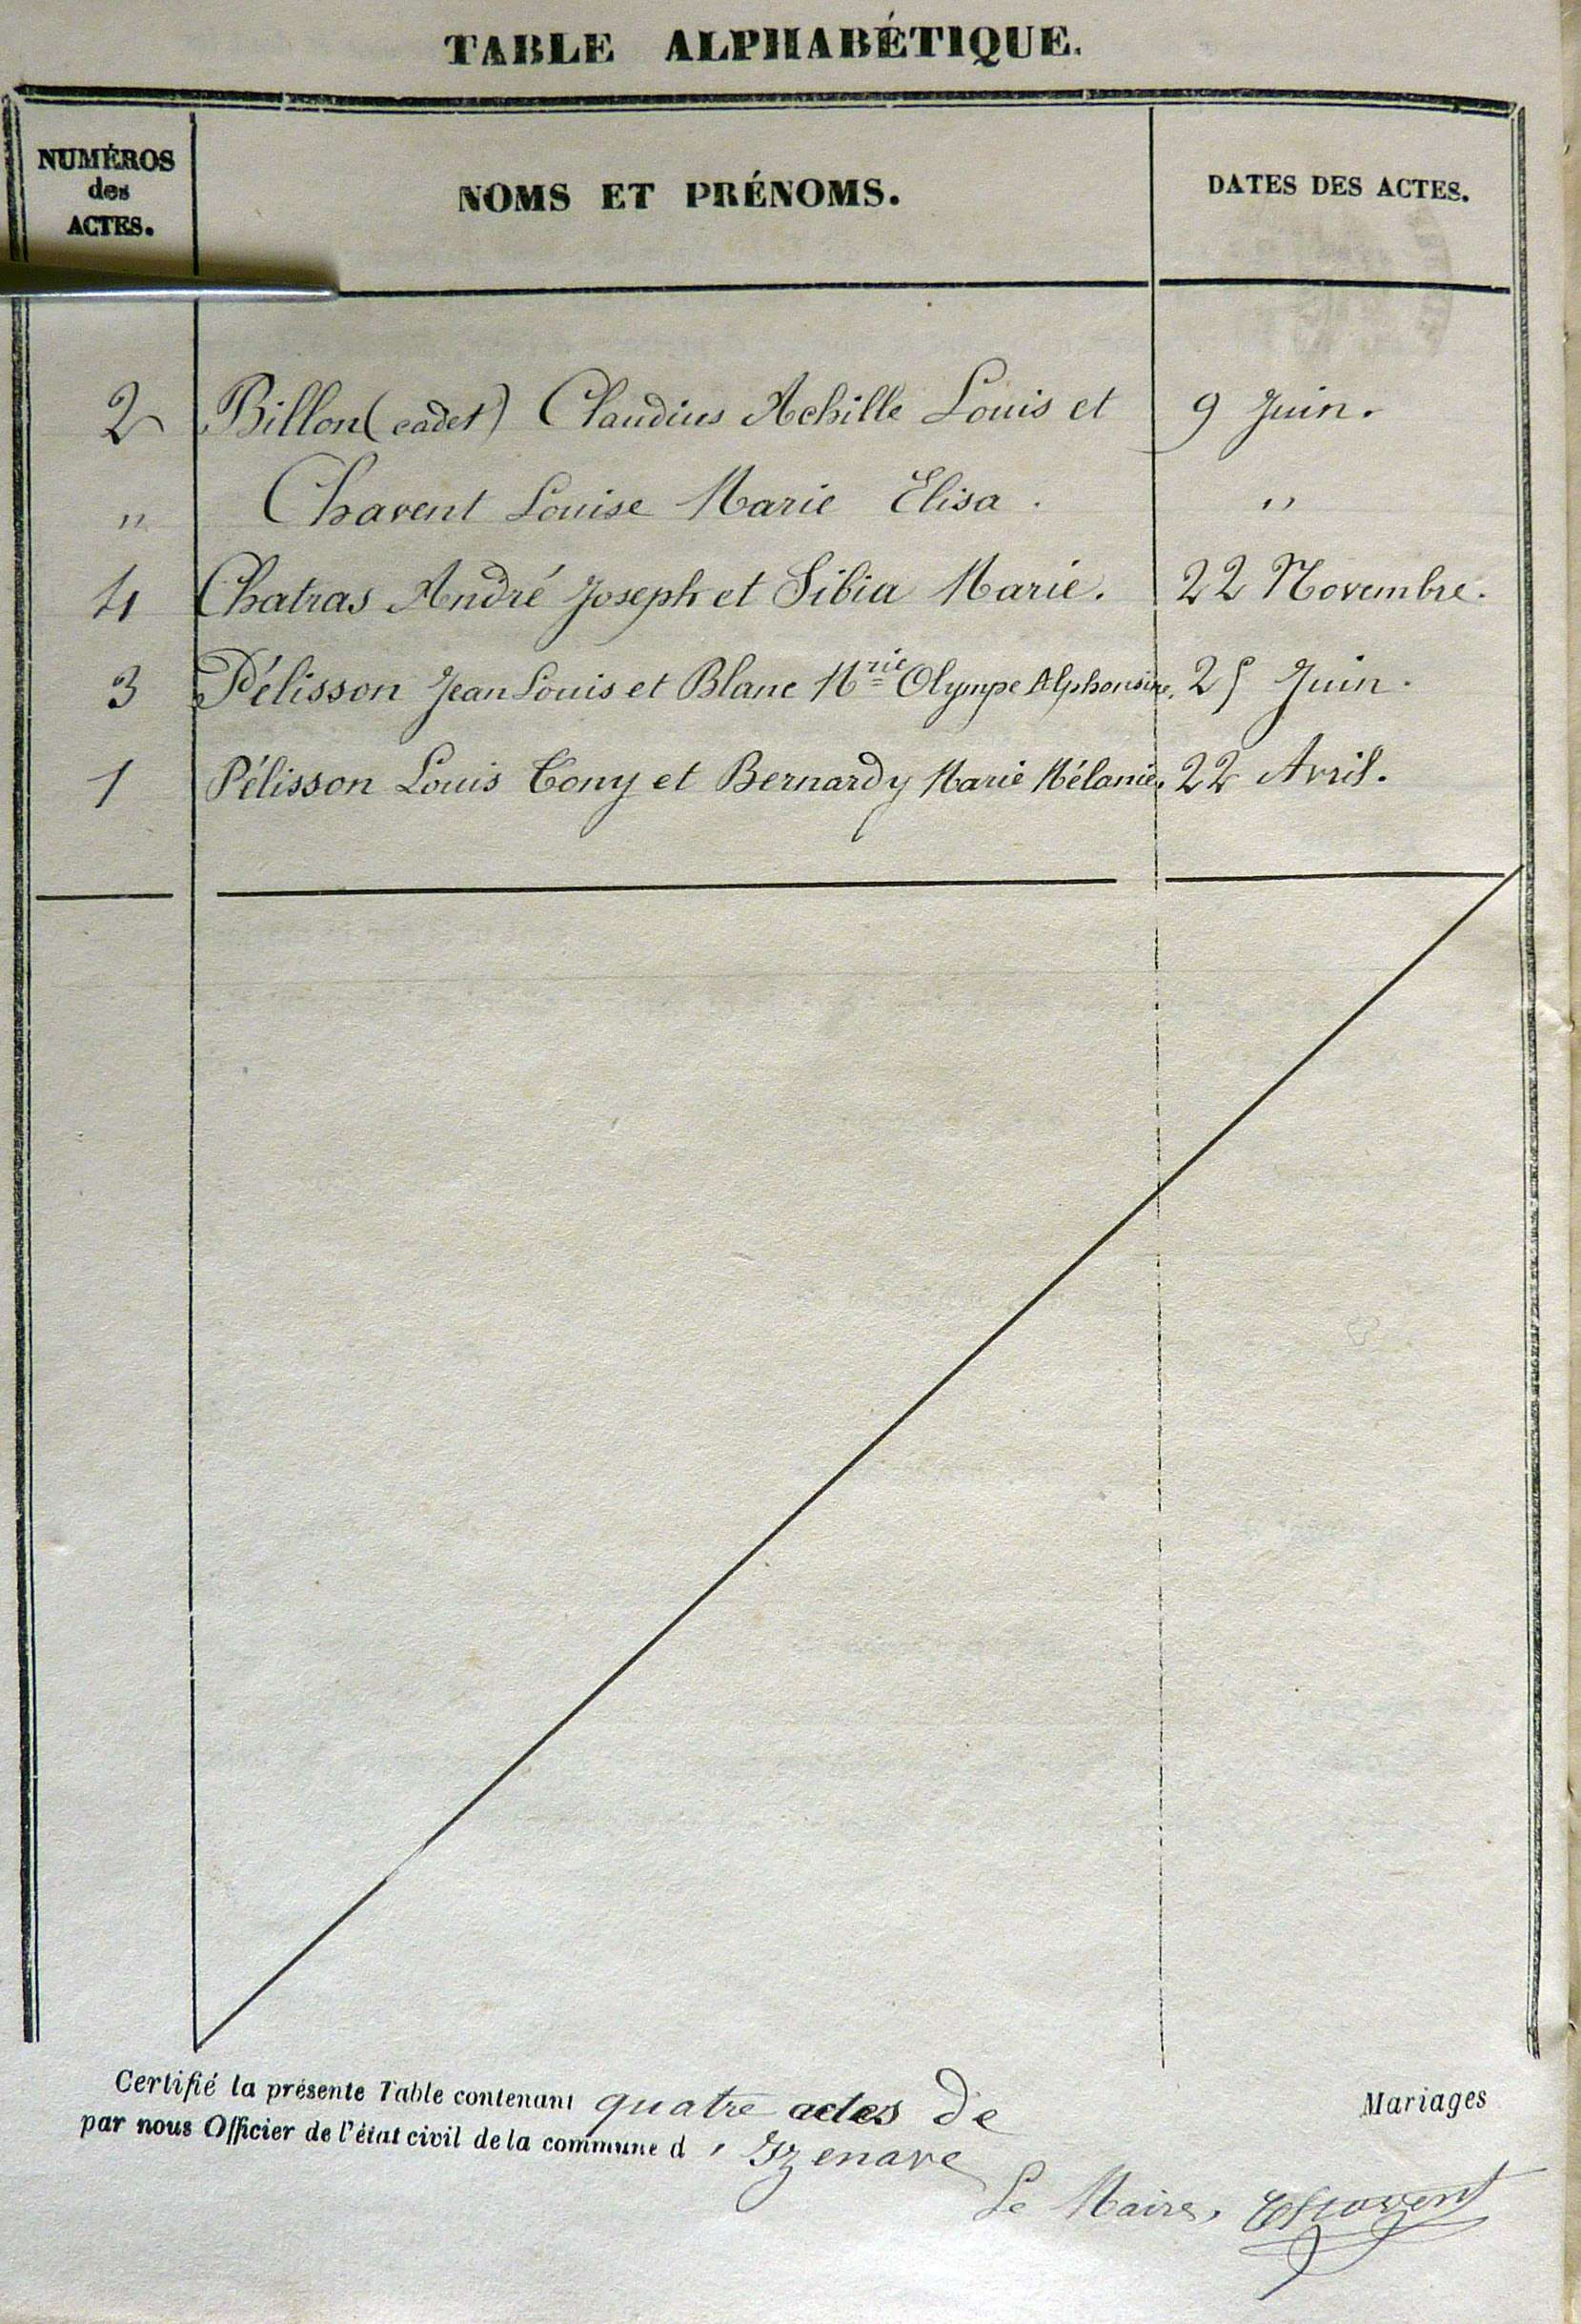 TABLE ALPHABÉTIQUE.
NUMÉROS
des
ACTES.
NOMS ET PRÉNOMS.
DATES DES ACTES.
2 Billon (cadet) Claudius Achille Louis et 9 Juin.
" Chavent Louise Marie Elisa. "
4 Chatras André Joseph et Sibia Marie. 22 Novembre.
3 Pélisson Jean Louis et Blanc Mrie Olympe Alphonsine. 25 Juin.
1 Pélisson Louis Tony et Bernardy Marie Mélanie. 22 Avril.
Certifié la présente Table contenant quatre actes de Mariages
par nous Officier de l'état civil de la commune d'Izenave
Le Maire, Chavent